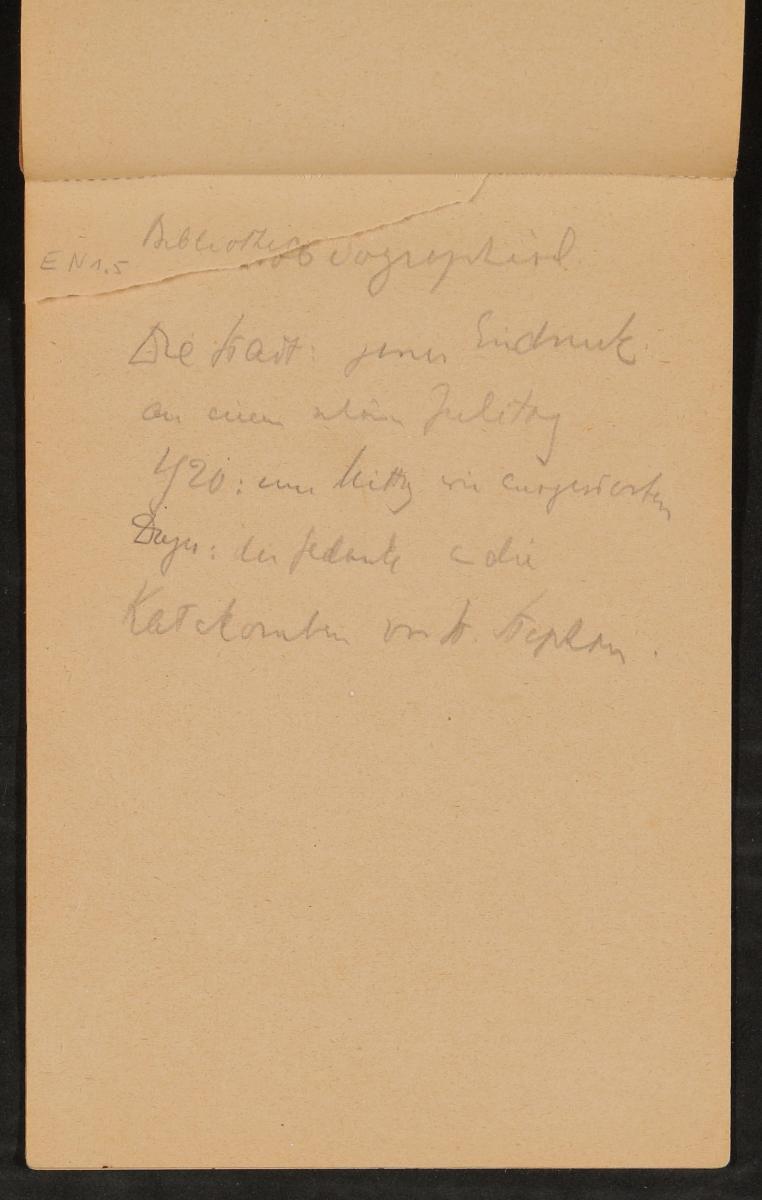 E N 1.5
Bibliothek
Die Stadt: jener Eindruck
an einem schönen Julitag
1920: um Mittag wie ausgestorben
der Gedanke an die
Katakomben von St. Stephan.